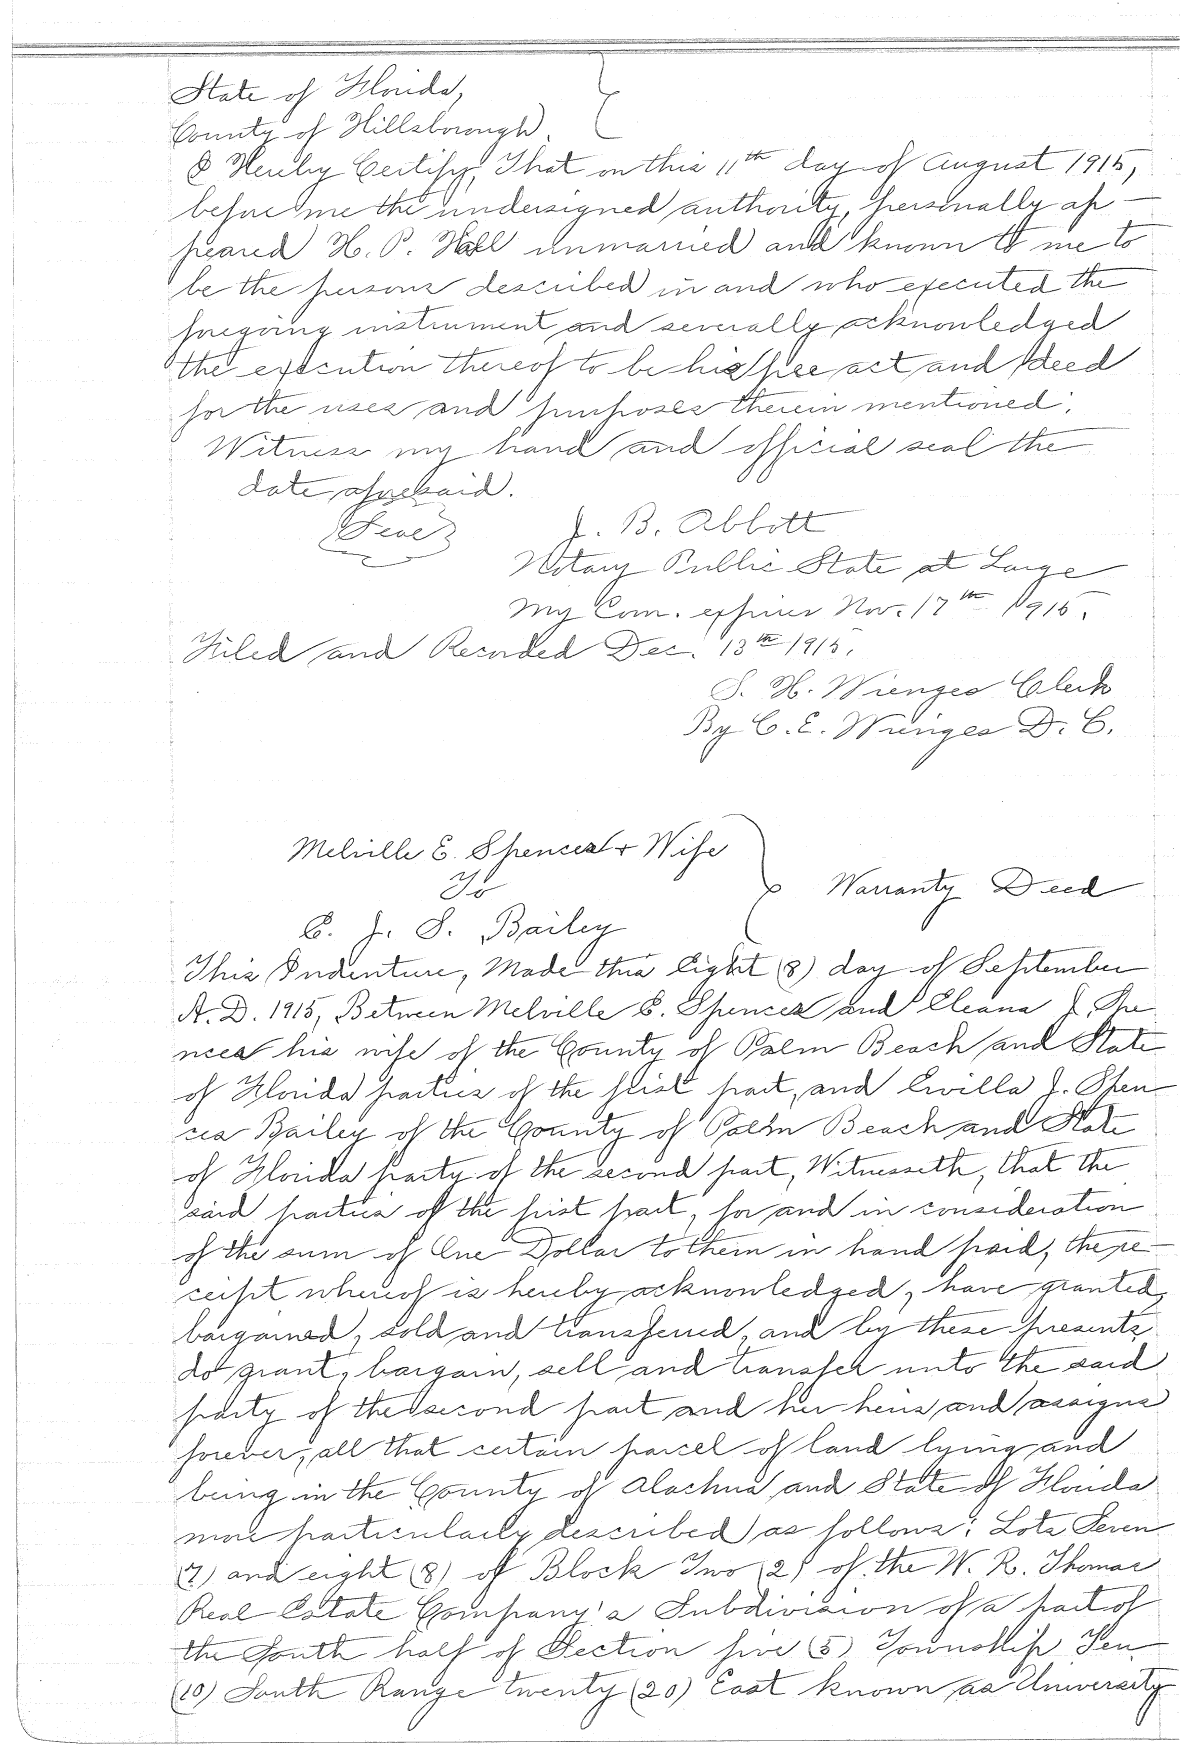 State of Florida,
County of Hillsborough.
I Hereby Certify, That on this 11th day of August 1915,
before me the undersigned authority, personally ap-
peared H. P. Hall unmarried and known to me to
be the persons described in and who executed the
foregoing instrument and severally acknowledged
the execution thereof to be his free act and deed
for the uses and purposes therein mentioned.
Witness my hand and official seal the
date aforesaid.
(Seal) J. B. Abbott
Notary Public State at Large
My Com. expires Nov. 17th 1915.
Filed and Recorded Dec. 13th 1915.
S. H. Wienges Clerk
By C. E. Wienges D. C.
Melville E. Spencer + Wife
To Warranty Deed
E. J. S. Bailey
This Indenture, Made this Eight (8) day of September
A. D. 1915, Between Melville E. Spencer and Eleana J. Spe
ncer his wife of the County of Palm Beach and State
of Florida parties of the first part, and Ewilla J. Spen
cer Bailey of the County of Palm Beach and State
of Florida party of the second part, Witnesseth, that the
said parties of the first part, for and in consideration
of the sum of One Dollar to them in hand paid, the re-
ceipt whereof is hereby acknowledged, have granted,
bargained, sold and transferred, and by these presents
do grant, bargain, sell and transfer unto the said
party of the second part and her heirs and assigns
forever, all that certain parcel of land lying and
being in the County of Alachua and State of Florida
more particularly described as follows: Lots Seven
(7) and eight (8) of Block Two (2) of the W. R. Thomas
Real Estate Company's Subdivision of a part of
the South half of Section five (5) Township Ten
(10) South Range twenty (20) East known as University